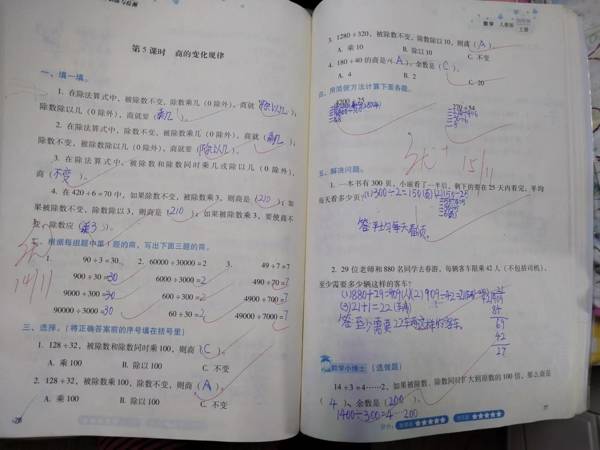 第5课时 商的变化规律
一、填一填。
1. 在除法算式中，被除数不变，除数乘几（0除外），商就（除以几）；
除数除以几（0除外），商就要（乘几）。
2. 在除法算式中，除数不变，被除数乘几（0除外），商就（乘几）；
除数不变，被除数除以几（0除外），商就要（除以几）。
3. 在除法算式中，被除数和除数同时乘几或除以几（0除外），
商（不变）。
4. 在420÷6=70中，如果除数不变，被除数乘3，则商是（210）；如
果被除数不变，除数除以3，则商是（210）；如果被除数乘3，要使商不
变，除数应（乘3）。
二、根据每组题中第1题的商，写出下面三题的商。
1. 90÷3=30 2. 60000÷30000=2 3. 49÷7=7
900÷30=30 6000÷3000=2 490÷70=7
9000÷300=30 600÷300=2 4900÷700=7
90000÷3000=30 60÷30=2 49000÷7000=7
三、选择。（将正确答案前的序号填在括号里）
1. 128÷32，被除数和除数同时乘100，则商（C）。
A. 乘100 B. 除以100 C. 不变
2. 128÷32，被除数乘100，除数不变，则商（A）。
A. 乘100 B. 除以100 C. 不变
数学 人教版
上册
3. 1280÷320，被除数不变，除数除以10，则商（A）。
A. 乘10 B. 除以10 C. 不变
4. 180÷40的商是（A），余数是（C）。
A. 4 B. 2 C. 20
四、用简便方法计算下面各题。
五、解决问题。
1. 一本书有300页，小丽看了一半后，剩下的要在25天内看完，平均
每天看多少页？(1)300÷2=150(页)
答:平均每天看6页。
2. 29位老师和880名同学去春游，每辆客车限乘42人（不包括司机）。
至少需要多少辆这样的客车？
(1)880+29=909(人)(2)909÷42=21(辆)
(3)21+1=22(辆)
答:至少需要22辆这样的客车。
84
69
42
27
数学小博士（选做题）
14÷3=4……2，如果被除数、除数同时扩大到原数的100倍，那么商是
（4），余数是（200）。
1400÷300=4…200